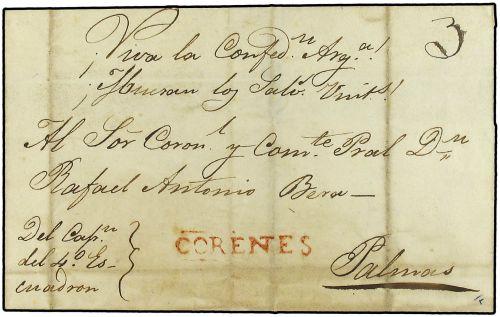 3
¡Viva la Confed.n Arg.a!
¡Mueran los Salv. Unit.s!
Al Sōr Coron.l y Com.te Pral D.n
Rafael Antonio Bera—
Del Cap.n
del 4.o Es-
cuadron
CORENTES
Palmas